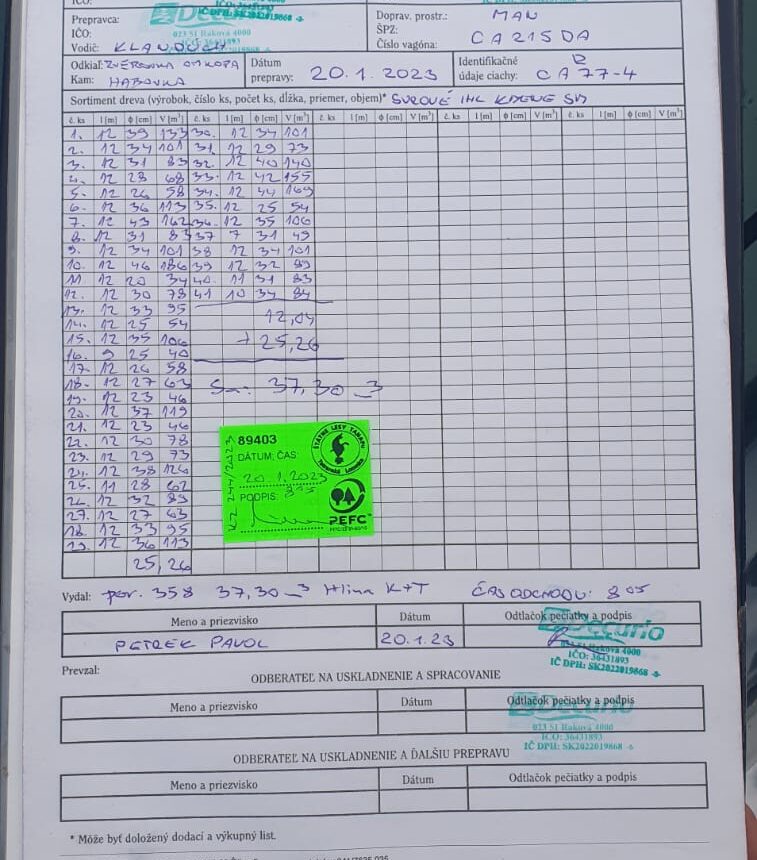 IČO: 36431893
Prepravca: Decurio IČ DPH: SK2022019868
IČO: 023 51 Raková 4000
Vodič: KLANDUCH
Doprav. prostr.: MAN
ŠPZ:
Číslo vagóna: CA215DA
Odkiaľ: ZVEROVKA
Kam: HABOVKA
Dátum
prepravy: 20.1.2023
Identifikačné
údaje ciachy: CA 77-4
Sortiment dreva (výrobok, číslo ks, počet ks, dĺžka, priemer, objem)* SUROVÉ IHL
č. ks l [m] ϕ [cm] V [m³] č. ks l [m] ϕ [cm] V [m³] č. ks l [m] ϕ [cm] V [m³] č. ks l [m] ϕ [cm] V [m³] č. ks l [m] ϕ [cm] V [m³]
1. 12 39 133 30. 12 34 101
2. 12 34 101 31. 12 29 73
3. 12 31 83 32. 12 40 140
4. 12 28 68 33. 12 42 155
5. 12 26 58 34. 12 44 169
6. 12 36 113 35. 12 25 54
7. 12 43 162 36. 12 35 106
8. 12 31 83 37 7 31 49
9. 12 34 101 38 12 34 101
10. 12 46 186 39 12 32 89
11 12 20 34 40. 11 31 83
12. 12 30 78 41 10 34 84
13. 12 33 95
14. 12 25 54 12,04
15. 12 35 106 + 25,26
16. 9 25 40
17. 12 26 58
18. 12 27 63 37,30
19. 12 23 46
20. 12 37 119
21. 12 23 46
22. 12 30 78
23. 12 29 73
24. 12 38 126
25. 11 28 62
26. 12 32 89
27. 12 27 63
28. 12 33 95
29. 12 36 113
25,26
KZ 244/2023
89403
DÁTUM, ČAS:
20.1.2023
815
PODPIS:
ŠTÁTNE LESY TANAPU
PEFC
Vydal: por. 358 37,30 Hlina K+T ČAS ODCHODU: 805
Meno a priezvisko Dátum Odtlačok pečiatky a podpis
PETREK PAVOL 20.1.23 Decurio
Raková 4000
IČO: 36431893
IČ DPH: SK2022019868
Prevzal:
ODBERATEĽ NA USKLADNENIE A SPRACOVANIE
Meno a priezvisko Dátum Odtlačok pečiatky a podpis
Decurio
023 51 Raková 4000
IČO: 36431893
IČ DPH: SK2022019868
ODBERATEĽ NA USKLADNENIE A ĎALŠIU PREPRAVU
Meno a priezvisko Dátum Odtlačok pečiatky a podpis
* Môže byť doložený dodací a výkupný list.